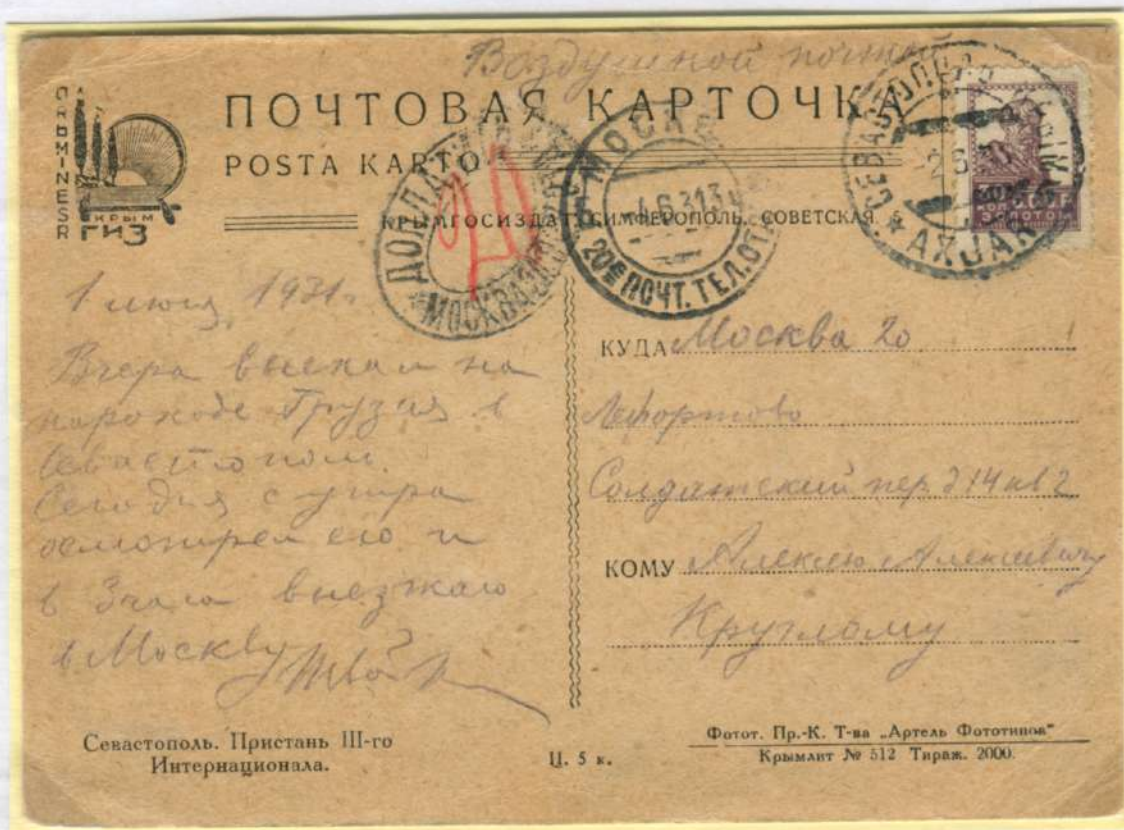 Воздушной почтой
ПОЧТОВАЯ КАРТОЧКА
POSTA KARTO
КРЫМ
ГИЗ
КРЫМГОСИЗДАТ СИМФЕРОПОЛЬ, СОВЕТСКАЯ, 5
ДОПЛАТИТЬ
МОСКВА
МОСКВА
4.6.31
20 ПОЧТ. ТЕЛ. ОТД.
СЕВАСТОПОЛЬ КРЫМ
AXJAR
1931г.
Вчера выехал на
пароходе Грузия в
Севастополь.
Сегодня с утра
осмотрел его и
в 3 часа выезжаю
в Москву
КУДА Москва 20
Лефортово
Солдатский пер д 14 кв 2
КОМУ Алексею Алексеевичу
Круглому
Севастополь. Пристань III-го
Интернационала.
Ц. 5 к.
Фотот. Пр.-К. Т-ва „Артель Фототипов"
Крымлит № 512 Тираж. 2000.